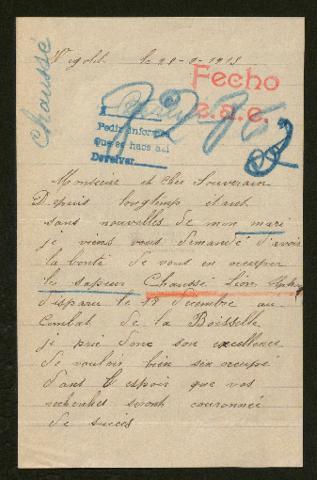 Chaussé
le 28-9-1915
Fecho
e.a.e.
Pedir informes
que se hace así
Devolver
Monsieur et cher Souverain
Depuis longtemp étant
sans nouvelles de mon mari
je viens vous demandé d'avoir
la bonté de vous en occuper
le sapeur Chaussé Léon
disparu le 17 décembre au
combat de la Boisselle
je prie donc son excellence
de vouloir bien sen occupé
dans l'espoir que vos
recherches seront couronnée
de succès